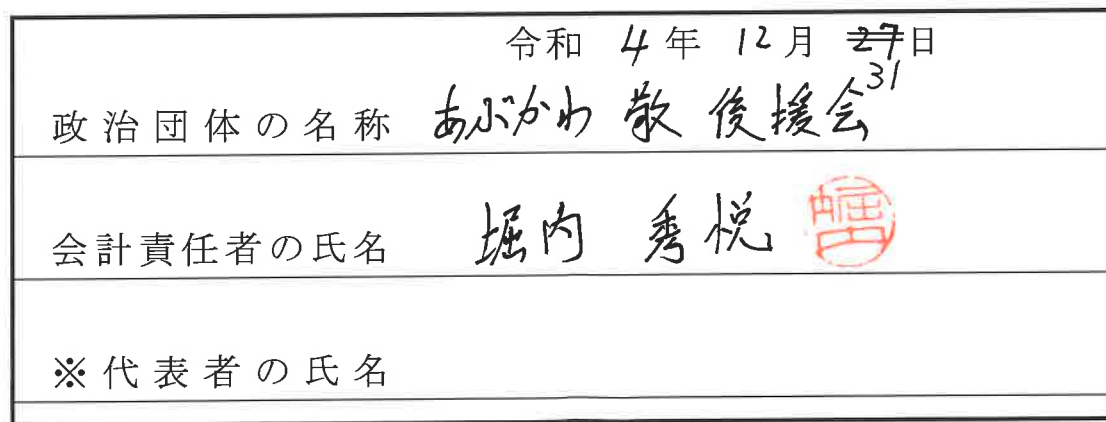 令和 4年 12月 27日
31
政治団体の名称 あぶかわ 敬 後援会
会計責任者の氏名 堀内 秀悦
堀内
※代表者の氏名